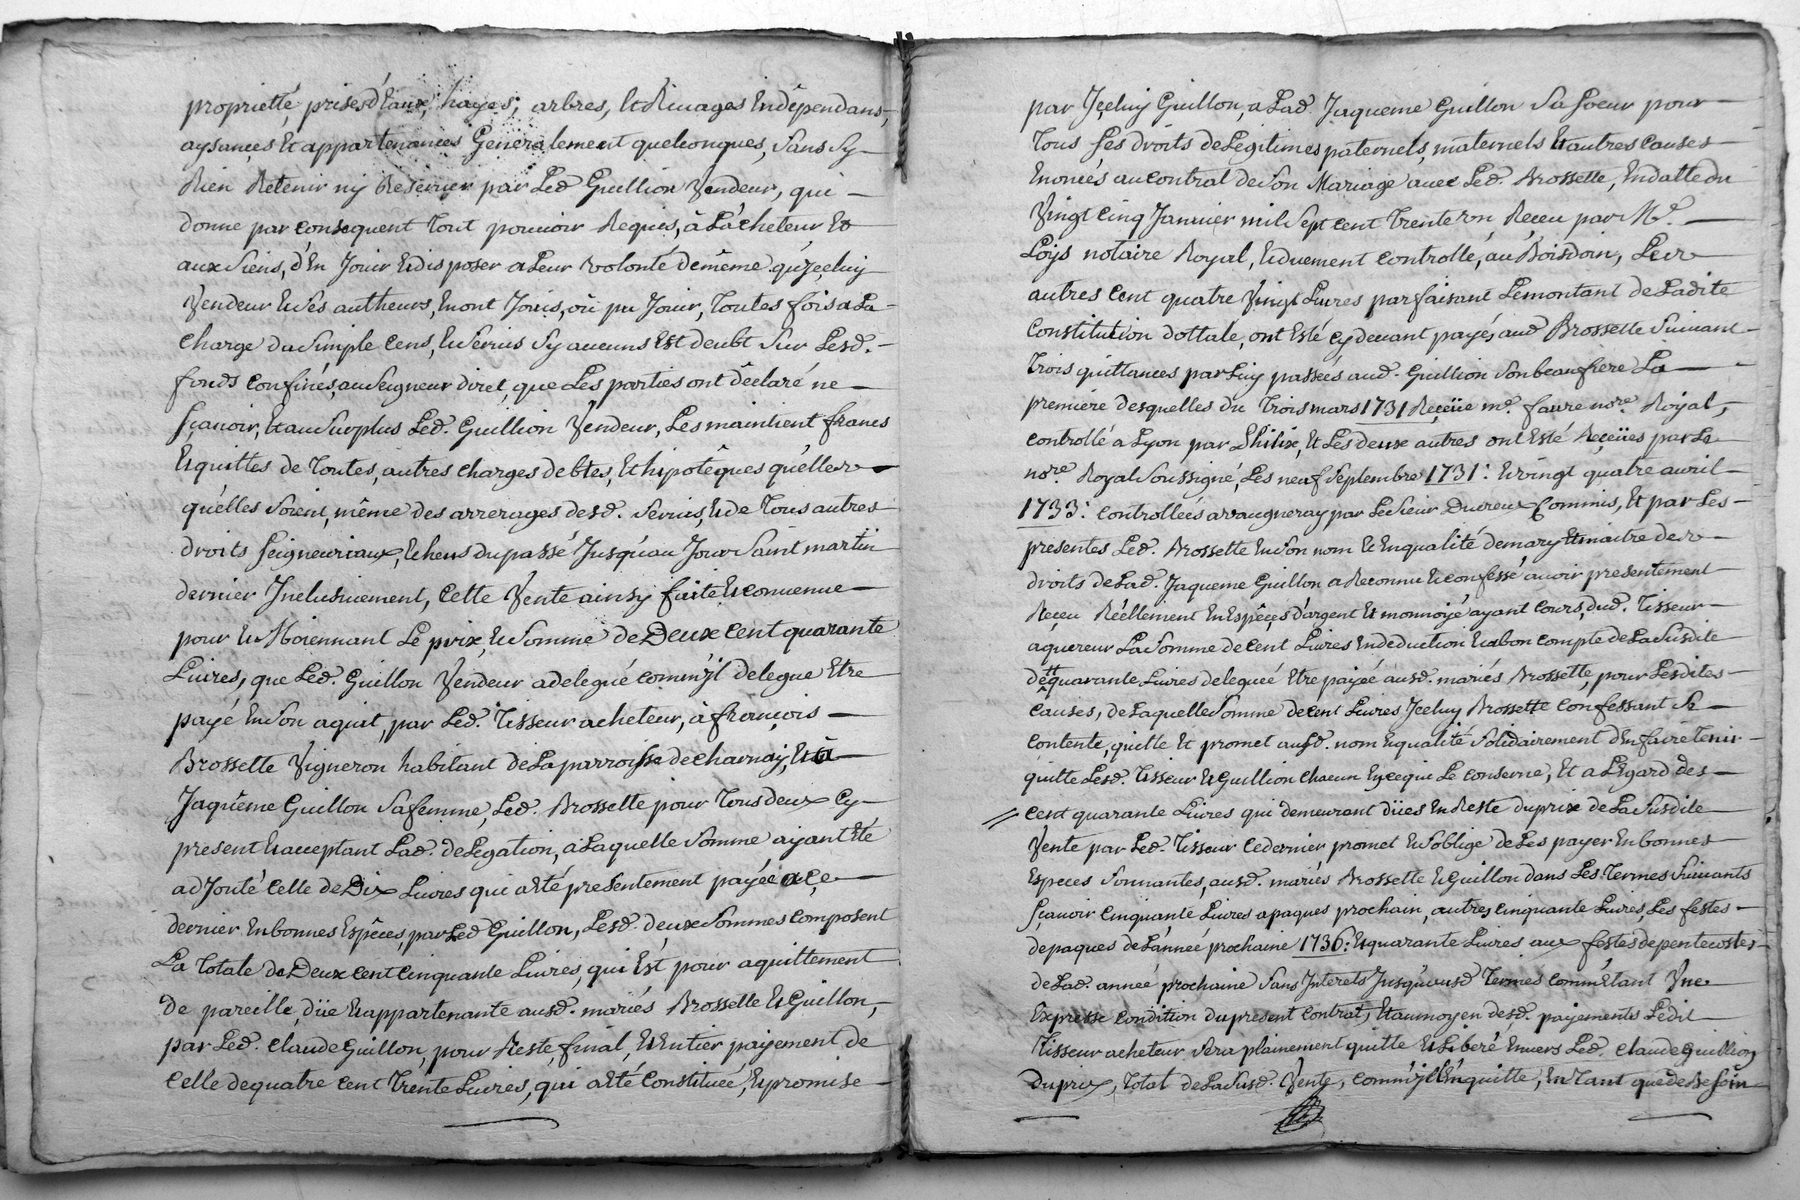 proprietté, prises d'Eaux, hayes, arbres, Et Rivages Endépendans,
aysances Et appartenances Generalement quelconques, Sans Sy
Rien Retenir ny Reserver par Led Guillion Vendeur, qui
donne par consequent Tout pouvoir Requis, à L'acheteur Et
aux Siens, d'En Jouir Et disposer a Leur volonté de même qu'Jceluy
Vendeur Et Ses autheurs, En ont Jouis, où pu Jouir, Toutes fois a La
charge du Simple Cens, Et Servis Sy aucuns Est deubt Sur Lesd.
fonds confinés, au Seigneur diret, que Les parties ont dêclaré ne
Sçavoir, Et au Surplus Led. Guillion Vendeur, Les maintient francs
Et quittes de Toutes, autres charges debtes, Et hipotêques qu'elles
qu'elles Soient, même des arrerages desd. Servis, Et de Tous autres
droits Seigneuriaux, Echeus du passé Jusqu'au Jour Saint martin
dernier Jnclusivement, Cette Vente ainsy faite Et convenue
pour Et Moiennant Le prix, Et Somme de Deux cent quarante
Livres, que Led. Guillon Vendeur a delegué comm'jl delegue Etre
payé En Son aquit, par Led. Tisseur acheteur, à françois
Brossette Vigneron habitant de La parroisse de charnay, Et à
Jaquême Guillon Sa femme, Led. Brossette pour Tous deux Cy
present Et acceptant Lad. delegation, a Laquelle Somme aÿant Eté
adJouté celle de Dix Livres qui a Eté presentement payée a Ce
dernier En bonnes Espêces, par Led Guillon, Lesd. deux Sommes composent
La Totale de Deux cent Cinquante Livres, qui Est pour aquittement
de pareille, düe Et appartenante ausd. mariés Brossette Et Guillon,
par Led. claude Guillon, pour Reste, final, Et Entier paÿement de
Celle de quatre cent Trente Livres, qui a Eté Constituée, Et promise
par Jceluy Guillon, a Lad. Jaqueme Guillon Sa Soeur pour
Tous Ses droits de Legitimes paternels, maternels Et autres causes
Enoncés au contrat de Son Mariage avec Led. Brossette, En datte du
Vingt Cinq Janvier mil Sept cent Trente Un, Reçeu par Me.
Loÿs notaire Royal, Et duement controllé, au Boisdoin, Les
autres Cent quatre Vingt Livres parfaisant Le montant de Ladite
Constitution dottale, ont Esté cy devant payés aud Brossette Suivant
Trois quittances par Luy passées aud. Guillion Son beaufrere La
premiere desquelles du Trois mars 1731 Reçeüe me. faure nore. Royal,
controllé a Lyon par , Et Les deux autres ont Esté Reçeües par Le
nore. Royal Soussigné, Les neuf Septembre 1731: Et vingt quatre avril
1733: Controllées a vaugneray par Le Sieur Ducreux Commis, Et par Les
presentes Led. Brossette En Son nom Et En qualité de mary Et maitre des
droits de Lad. Jaqueme Guillon a Reconnu Et confessé avoir presentement
Reçeu Réellement En Espêçes d'argent Et monnoyé ayant cours, dud. Tisseur
aquereur La Somme de cent Livres En deduction Et a bon compte de La Susdite
de quarante Livres deleguée Etre payée ausd. mariés Brossette, pour Lesdites
causes, de Laquelle Somme de cent Livres Jceluy Brossette Confessant Se
contente, quitte Et promet ausd. nom Et qualité Solidairement d'En faire Tenir
quitte Lesd. Tisseur Et Guillion chacun En ce qui Le conserne, Et a L'Egard des
Cent quarante Livres qui demeurent dües En Reste du prix de La Susdite
Vente par Led Tisseur ce dernier promet Et S'oblige de Les payer En bonnes
Especes Sonnantes, ausd. mariés Brossette Et Guillon dans Les Termes Suivants
Sçavoir Cinquante Livres a paques prochain, autres Cinquante Livres, Les festes
de paques de L'année prochaine 1736: Et quarante Livres aux festes de pentecostes
de Lad. année prochaine Sans Jnterets Jusqu'ausd Termes comm'Etant Vne
Expresse condition du present contrat, Et au moyen desd. payements Ledit
Tisseur acheteur Sera plainement quitte Et Liberé Envers Led. Claude Guillion
du prix, Total de La Susd. Vente, comm'jl L'En quitte, En Tant que de Besoin